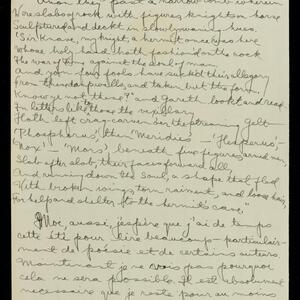 Anon they past a narrow comb wherein
Were slabs of rock with figures, knights on horse
Sculptured and deckt in slowly waning hues.
"Sir Knave, my knight, a hermit once was here
Whose holy hand hath fashion'd on the rock
The war of Time against the soul of man
And yon four fools have suck'd their allegory
From these damp walls, and taken but the form.
Know ye not these?" and Gareth lookt and read
In letters like those the vexillary
Hath left crag-carven o'er the streaming Gelt
'Phosphorus,' then 'Meridies' 'Hesperus,'
'Nox' 'Mors' beneath five figures, armed men,
Slab after slab, their faces forward all,
And running down the Soul, a shape that fled
With broken wings, torn raiment, and loose hair,
For help and shelter to the hermit's cave."
Moi, aussi, j'espère que j'ai de temps
cette été pour lire beaucoup - particulair-
ment de poésie et de certains auters.
Maintenant je ne vois pas pourquoi
cela ne sera possible. Il est absolument
necessaire que je reste pour au moins